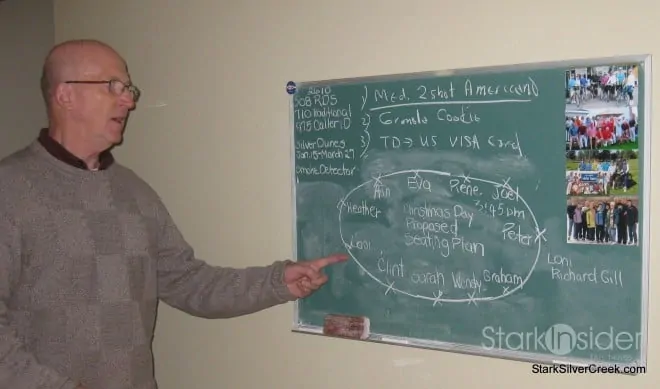 2010
508 RDS
710 Traditional
975 Caller ID
Silver Dunes
Jan. 15-March 27
Smoke Detector
1) Med, 2 shot Americano
2) Granola Cookie
3) TD → US VISA Card
Ann Eva Pierre Joel
3:45 pm
Heather
Christmas Day
Proposed
Seating Plan
Peter
Clint Sarah Wendy Graham
Loni
Richard Gill
StarkInsider
StarkSilverCreek.com